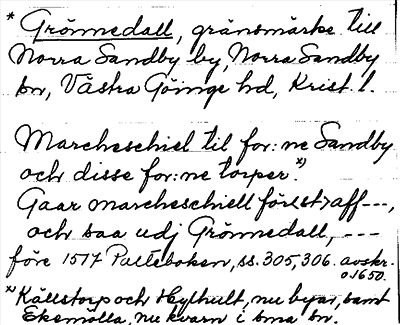 * Grönnedall, gränsmärke till
Norra Sandby by, Norra Sandby
sn, Västra Göinge hd, Krist. l.
Marcheschiel til for:ne Sandby
och disse for:ne torper.x)
Gaar marcheschiell först aff ---,
och saa udj Grönnedall, ---
före 1517 Palteboken, ss. 305, 306. avskr.
o 1650.
x) Källstorp och Hylhult, nu byar, samt
Ekemölla, nu kvarn i sma sn.